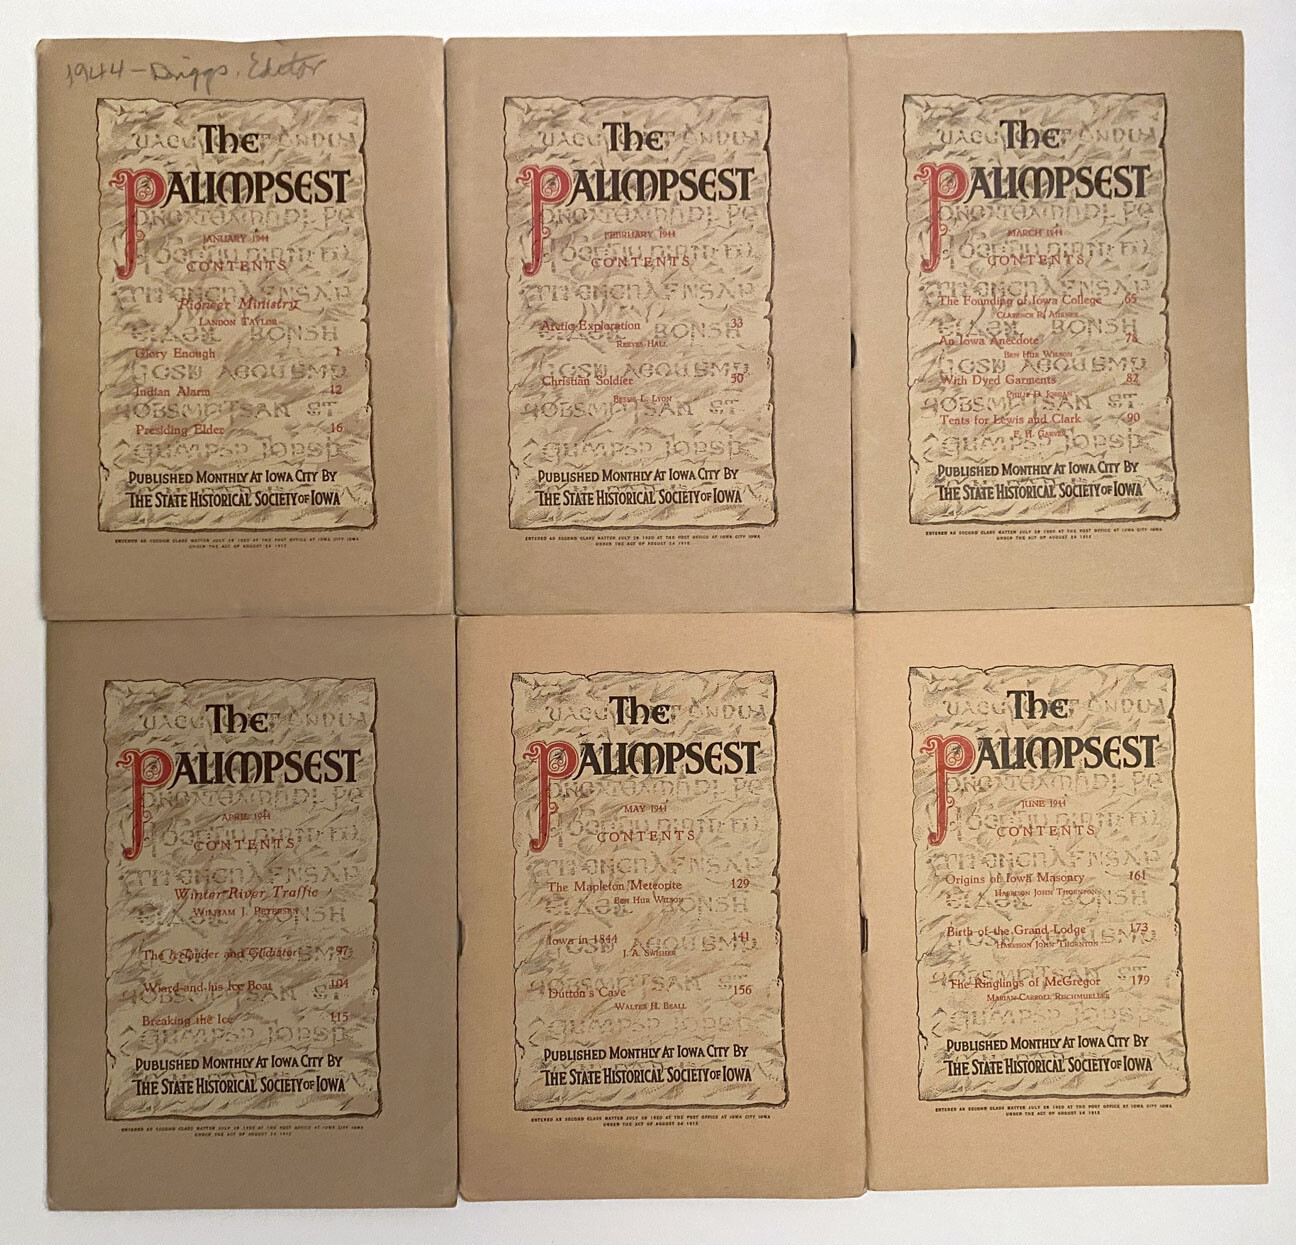 1944 - Briggs, Editor
The
PALIMPSEST
JANUARY 1944
CONTENTS
Pioneer Ministry
LANDON TAYLOR
Glory Enough 1
Indian Alarm 12
Presiding Elder 16
PUBLISHED MONTHLY AT IOWA CITY BY
THE STATE HISTORICAL SOCIETY OF IOWA
ENTERED AS SECOND CLASS MATTER JULY 28 1920 AT THE POST OFFICE AT IOWA CITY IOWA
UNDER THE ACT OF AUGUST 24 1912
The
PALIMPSEST
FEBRUARY 1944
CONTENTS
Arctic Exploration 33
REEVES HALL
Christian Soldier 50
BESSIE L. LYON
PUBLISHED MONTHLY AT IOWA CITY BY
THE STATE HISTORICAL SOCIETY OF IOWA
ENTERED AS SECOND CLASS MATTER JULY 28 1920 AT THE POST OFFICE AT IOWA CITY IOWA
UNDER THE ACT OF AUGUST 24 1912
The
PALIMPSEST
MARCH 1944
CONTENTS
The Founding of Iowa College 65
CLARENCE R. AURNER
An Iowa Anecdote 78
BEN HUR WILSON
With Dyed Garments 82
PHILIP D. JORDAN
Tents for Lewis and Clark 90
F. H. GARVER
PUBLISHED MONTHLY AT IOWA CITY BY
THE STATE HISTORICAL SOCIETY OF IOWA
ENTERED AS SECOND CLASS MATTER JULY 28 1920 AT THE POST OFFICE AT IOWA CITY IOWA
UNDER THE ACT OF AUGUST 24 1912
The
PALIMPSEST
APRIL 1944
CONTENTS
Winter River Traffic
WILLIAM J. PETERSEN
The Icelander and Gladiator 97
Wiard and his Ice Boat 104
Breaking the Ice 115
PUBLISHED MONTHLY AT IOWA CITY BY
THE STATE HISTORICAL SOCIETY OF IOWA
ENTERED AS SECOND CLASS MATTER JULY 28 1920 AT THE POST OFFICE AT IOWA CITY IOWA
UNDER THE ACT OF AUGUST 24 1912
The
PALIMPSEST
MAY 1944
CONTENTS
The Mapleton Meteorite 129
BEN HUR WILSON
Iowa in 1844 141
J. A. SWISHER
Dutton's Cave 156
WALTER H. BEALL
PUBLISHED MONTHLY AT IOWA CITY BY
THE STATE HISTORICAL SOCIETY OF IOWA
ENTERED AS SECOND CLASS MATTER JULY 28 1920 AT THE POST OFFICE AT IOWA CITY IOWA
UNDER THE ACT OF AUGUST 24 1912
The
PALIMPSEST
JUNE 1944
CONTENTS
Origins of Iowa Masonry 161
HARRISON JOHN THORNTON
Birth of the Grand Lodge 173
HARRISON JOHN THORNTON
The Ringlings of McGregor 179
MARIAN CARROLL RISCHMUELLER
PUBLISHED MONTHLY AT IOWA CITY BY
THE STATE HISTORICAL SOCIETY OF IOWA
ENTERED AS SECOND CLASS MATTER JULY 28 1920 AT THE POST OFFICE AT IOWA CITY IOWA
UNDER THE ACT OF AUGUST 24 1912